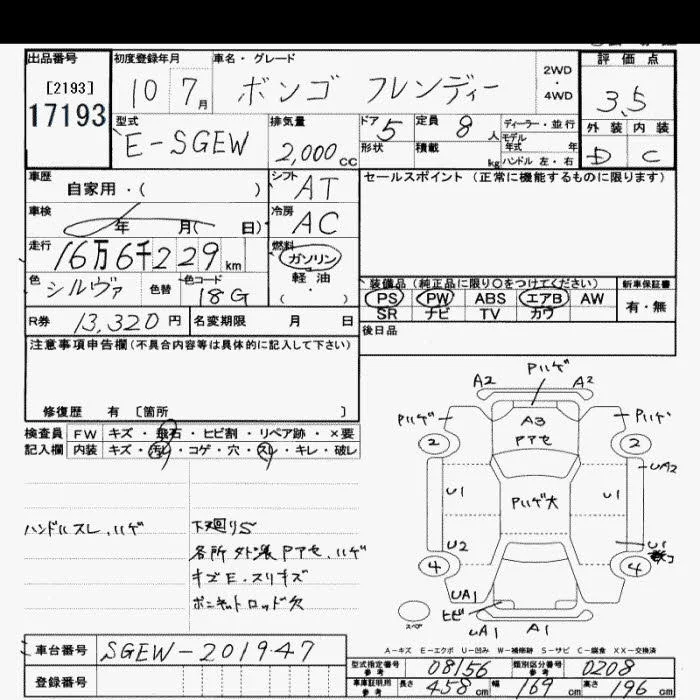 出品番号 初度登録年月 車名・グレード 評価点
[2193] 10 7月 ボンゴ フレンディー 2WD・4WD 3.5
17193
型式 排気量 ドア 定員 ディーラー・並行 外装 内装
E-SGEW 2,000cc 5 8人 モデル年式 年 D C
形状 積載 kg ハンドル 左・右
車歴 シフト セールスポイント (正常に機能するものに限ります)
自家用・( ) AT
車検 冷房
年 月( 日) AC
走行 燃料
16万6千229km ガソリン
色 色替 色コード 軽油
シルヴァ 18G (・)
装備品 (純正品に限り○をつけてください) 新車保証書
PS PW ABS エアB AW 有・無
SR ナビ TV カワ
R券 13,320円 名変期限 月 日 後日品
注意事項申告欄 (不具合内容等は具体的に記入して下さい)
修復歴 有 [箇所 ]
検査員 FW キズ・飛石・ヒビ割・リペア跡・×要
記入欄 内装 キズ・汚レ・コゲ・穴・スレ・キレ・破レ
ハンドルスレ、ハゲ
下廻りS
各所タド漆Pアセ、ハゲ
キズE、スリキズ
ボンネットロッド欠
Pハゲ
A2 A2
Pハゲ Pハゲ
A3
Pアセ
2 2
UA2
U1 Pハゲ大 U1
U2 U1
4 4
UA1
ヒビ
スペア UA1 A1
A-キズ E-エクボ U-凹み W-補修跡 S-サビ C-腐食 XX-交換済
車台番号 SGEW-201947
登録番号
型式指定番号 参考 08156 類別区分番号 参考 0208
車庫証明用 参考 長さ 458cm 幅 169cm 高さ 196cm